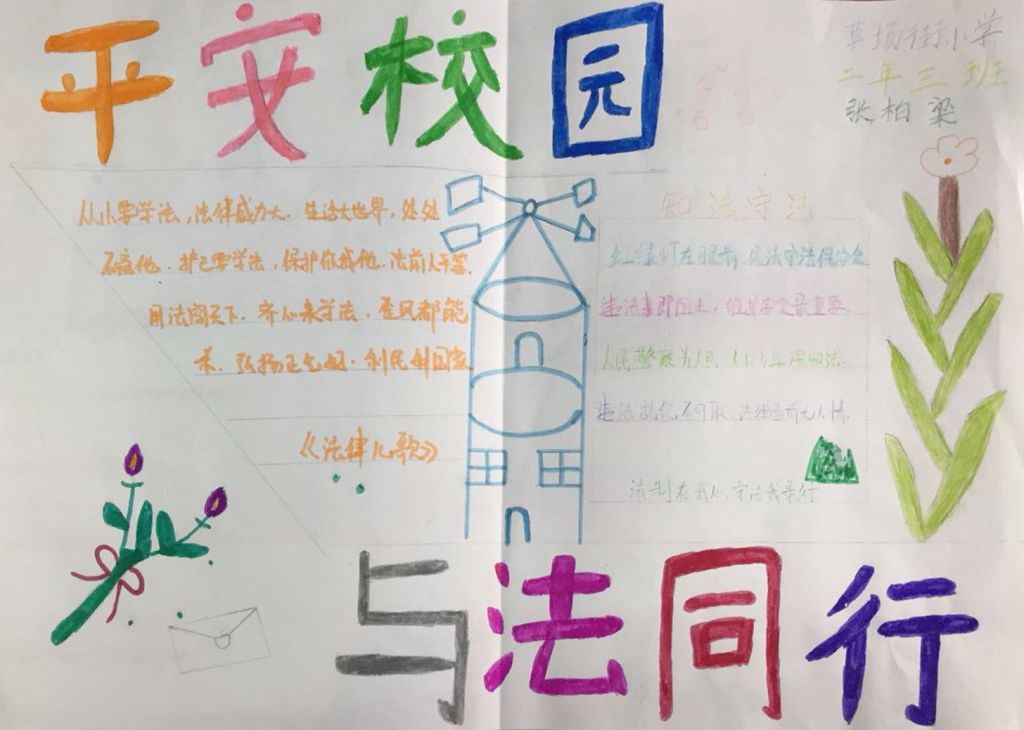 平安校园
草场街小学
二年三班
张柏梁
从小要学法,法律威力大.生活大世界,处处
不离他.护己要学法,保护你我他.法前人平等.
用法闯天下.齐心来学法,歪风都能
杀.弘扬正气好.利民利国家
《法律儿歌》
知法守法
红绿灯在眼前 依法守法保安全
违法事即阻止,维护安定最重要.
人民警察为人民,从小少年
违法乱纪不可取.法律面前无人情.
法制在我心,守法我最行
与法同行